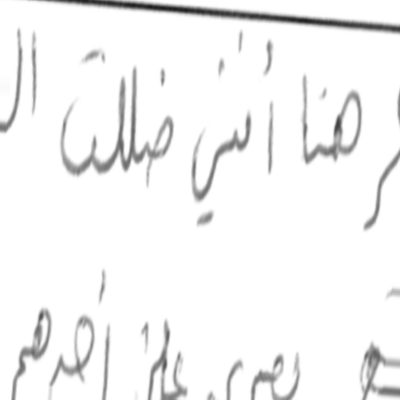 هنا أنني ضللت ال
بصري على أحدهم